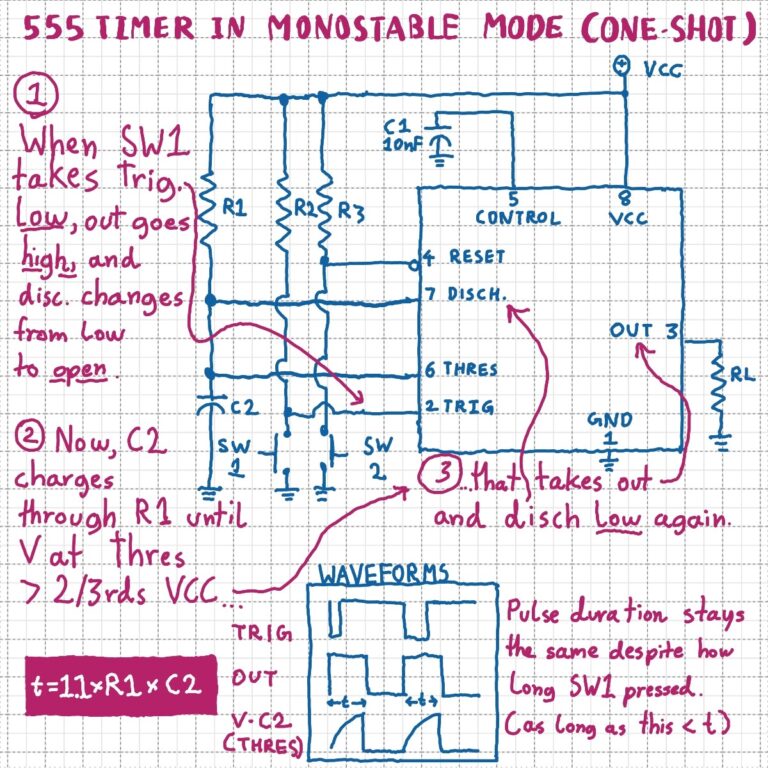 555 TIMER IN MONOSTABLE MODE (ONE-SHOT)
1
When SW1
takes Trig.
Low, out goes
high, and
disc. changes
from Low
to open.
2 Now, C2
charges
through R1 until
V at Thres
> 2/3rds VCC...
t=1.1×R1×C2
+ VCC
C1
10nF
R1
R2
R3
5
CONTROL
8
VCC
4 RESET
7 DISCH.
OUT 3
6 THRES
2 TRIG
RL
GND
1
C2
SW
1
SW
2
3 ...that takes out
and disch Low again.
WAVEFORMS
TRIG
OUT
t
t
V-C2
(THRES)
Pulse duration stays
the same despite how
Long SW1 pressed.
(as long as this < t)